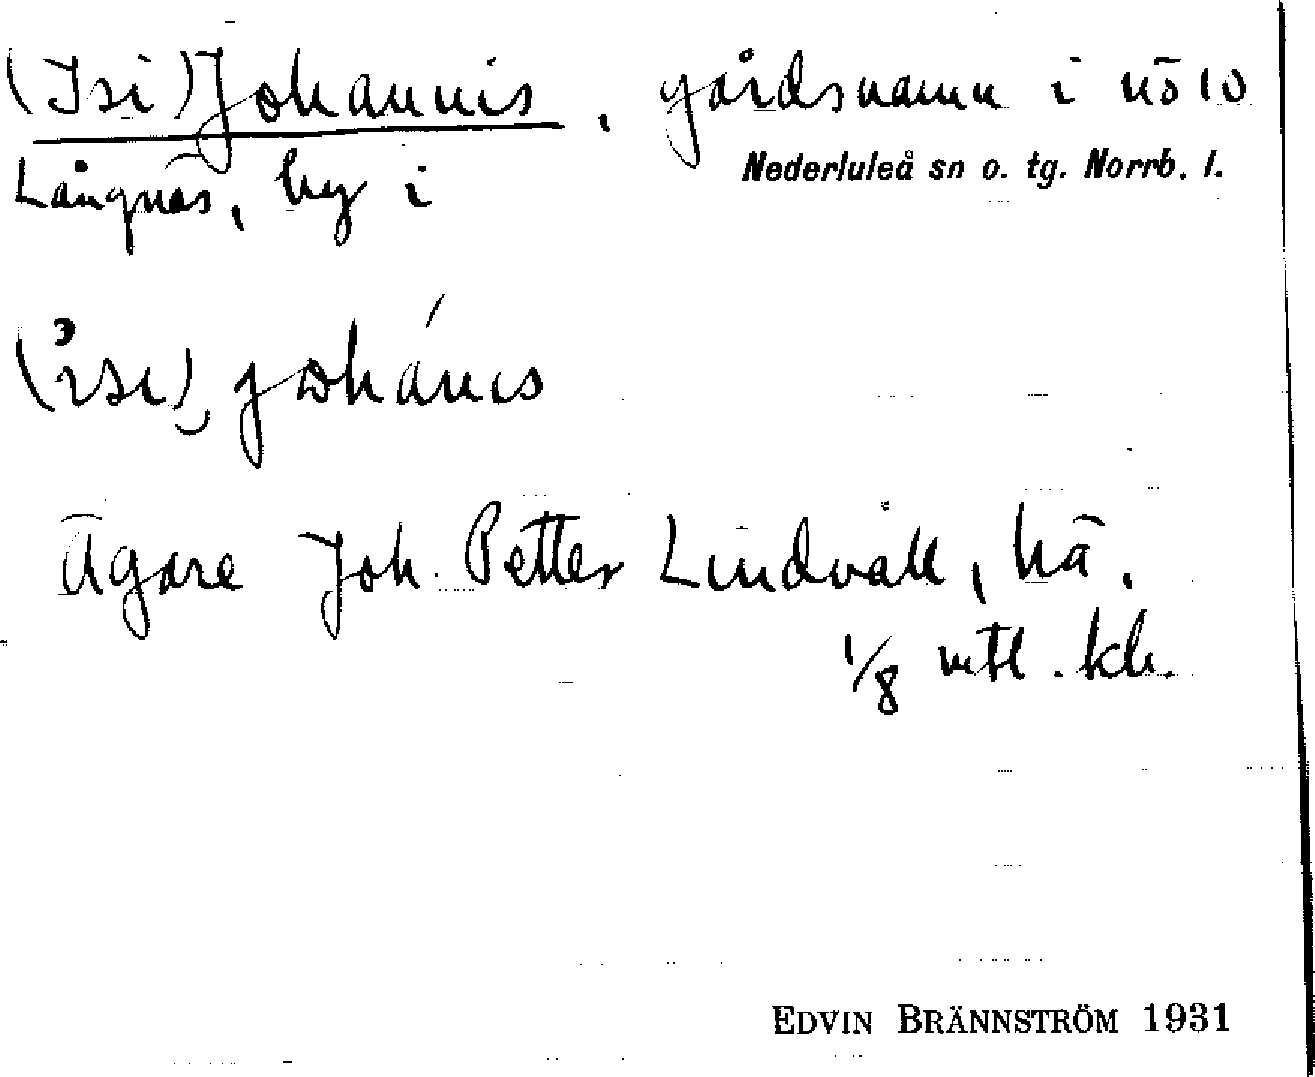 (Isi)Johannis, gårdsnamn i nö 10
Nederluleå sn o. tg. Norrb. l.
Långnäs, by i
(ɩsɩ) johánɩs
Ägare Joh. Petter Lindvall, hä.
1/8 mtl. kh.
EDVIN BRÄNNSTRÖM 1931